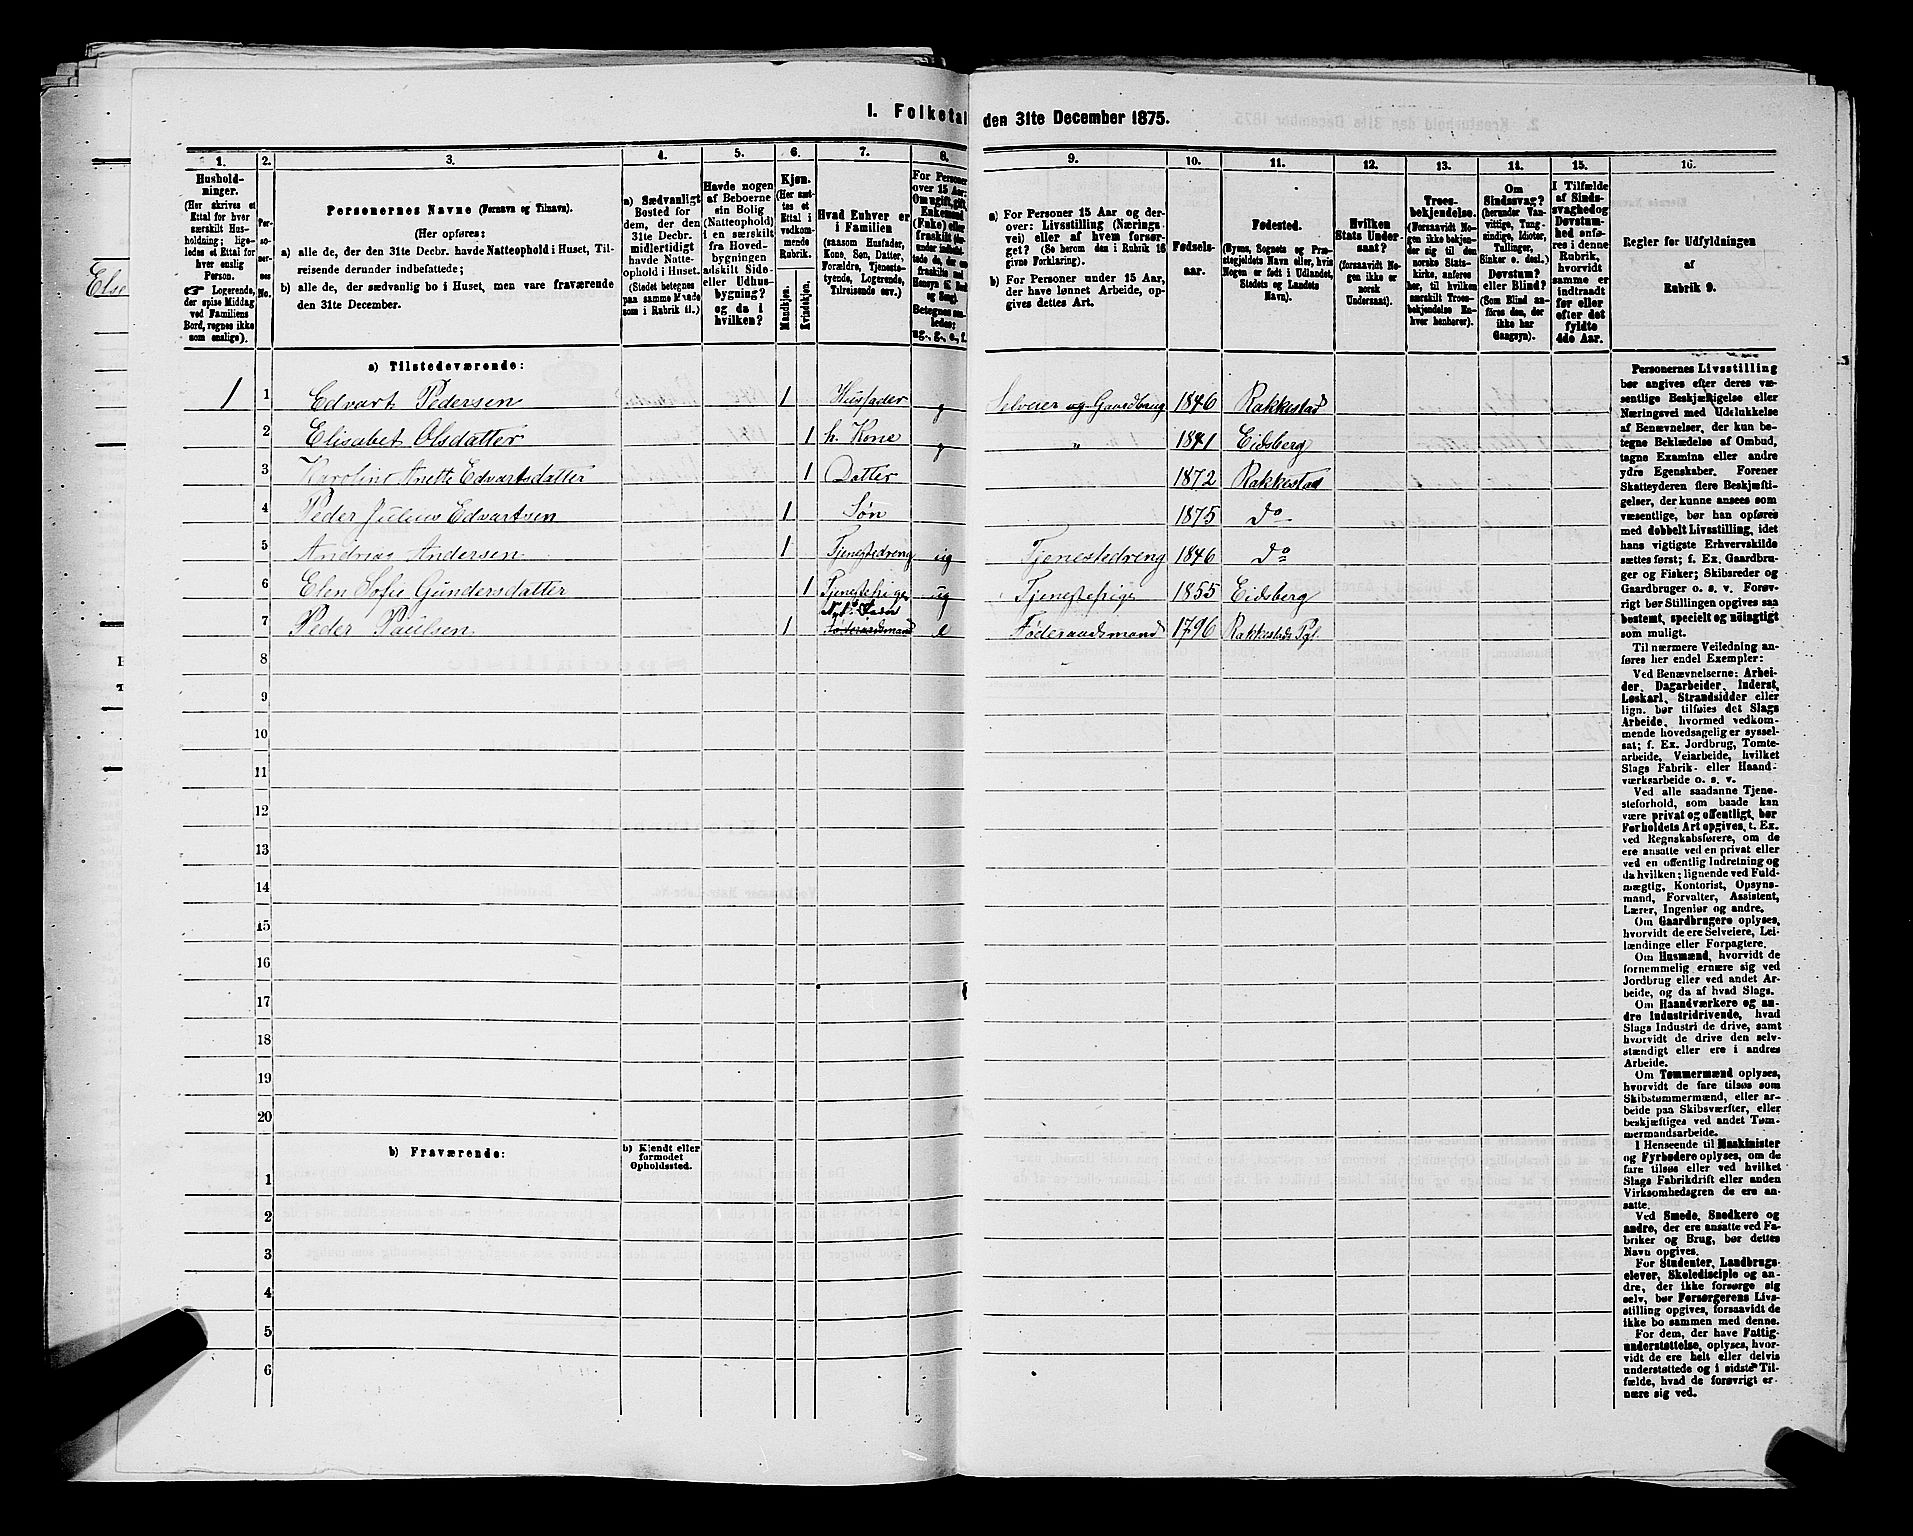 I. Folketal den 31te December 1875.
1. 2. 3. 4. 5. 6. 7. 8. 9. 10. 11. 12. 13. 14. 15. 16.
Hushold-
ninger.
(Her skrives et
Ettal for hver
særskilt Hus-
holdning; lige-
ledes et Ettal for
hver enslig
Person.
Logerende,
der spise Middag
ved Familiens
Bord, regnes ikke
som enslige).
Per-
so-
ner-
nes
No.
Personernes Navne (Fornavn og Tilnavn).
(Her opføres:
a) alle de, der den 31te Decbr. havde Natteophold i Huset, Til-
reisende derunder indbefattede;
b) alle de, der sædvanlig bo i Huset, men vare fraværende
den 31te December.
a) Sædvanligt
Bosted for
dem, der den
31te Decbr.
midlertidigt
havde Natte-
ophold i Huset.
(Stedet betegnes
paa samme Maade
som i Rubrik 11.)
Havde nogen
af Beboerne
sin Bolig
(Natteophold)
i en særskilt
fra Hoved-
bygningen
adskilt Side-
eller Udhus-
bygning?
og da i
hvilken?
Kjøn.
(Her sæt-
tes et
Ettal i
vedkom-
mende
Rubrik.
Mandkjøn.
Kvindekjøn.
Hvad Enhver er
i Familien
(saasom Husfader,
Kone, Søn, Datter,
Forældre, Tjeneste-
tyende, Logerende,
Tilreisende osv.)
For Personer
over 15 Aar:
Om ugift, gift,
Enkemand
(Enke) eller
fraskilt
Betegnes saa-
ledes:
ug., g., e., f.
a) For Personer 15 Aar og der-
over: Livsstilling (Nærings-
vei) eller af hvem forsør-
get? (Se herom den i Rubrik 16
givne Forklaring).
b) For Personer under 15 Aar,
der have lønnet Arbeide, op-
gives dettes Art.
Fødsels-
aar.
Fødested.
(Byens, Sognets og Præ-
stegjeldets Navn eller, hvis
Nogen er født i Udlandet,
Stedets og Landets
Navn).
Hvilken
Stats Under-
saat?
(forsaavidt No-
gen ikke er
norsk
Undersaat).
Troes-
bekjendelse.
(Forsaavidt No-
gen ikke bekjen-
der sig til den
norske Stats-
kirke, anføres
her, til hvilken
særskilt Troes-
bekjendelse En-
hver henhører).
Om
Sindssvag?
(herunder Van-
vittige, Tung-
sindige, Idioter,
Tullinger,
Sinker o. desl.)
Døvstum?
eller Blind?
(Som Blind an-
føres den, der
ikke har
Gangsyn).
I Tilfælde
af Sinds-
svaghed og
Døvstum-
hed anfø-
res i denne
Rubrik,
hvorvidt
samme er
indtraadt
før eller
efter det
fyldte
4de Aar.
Regler for Udfyldningen
af
Rubrik 9.
a) Tilstedeværende:
1 1 Edvart Pedersen 1 Husfader g Selveier og Gaardbrug 1846 Rakkestad
2 Elisabet Olsdatter 1 h. Kone g " 1841 Eidsberg
3 Karoline Anette Edvartsdatter 1 Datter 1872 Rakkestad
4 Peder Julius Edvartsen 1 Søn 1875 do
5 Andreas Andersen 1 Tjenestedreng ug Tjenestedreng 1846 do
6 Elen Sofie Gundersdatter 1 Tjenestepige ug Tjenestepige 1855 Eidsberg
7 Peder Paulsen 1 Føderaadsmand e Føderaadsmand 1796 Rakkestads Pgl.
8
9
10
11
12
13
14
15
16
17
18
19
20
b) Fraværende:
b) Kjendt eller
formodet
Opholdssted.
1
2
3
4
5
6
Personernes Livsstilling
bør angives efter deres væ-
sentlige Beskjæftigelse eller
Næringsvei med Udelukkelse
af Benævnelser, der kun be-
tegne Beklædelse af Ombud,
tagne Examina eller andre
ydre Egenskaber. Forener
Skatteyderen flere Beskjæfti-
gelser, der kunne ansees som
væsentlige, bør han opføres
med dobbelt Livsstilling, idet
hans vigtigste Erhvervskilde
sættes først; f. Ex. Gaardbru-
ger og Fisker; Skibsreder og
Gaardbruger o. s. v. Forøv-
rigt bør Stillingen opgives saa
bestemt, specielt og nøiagtigt
som muligt.
Til nærmere Veiledning an-
føres her endel Exempler:
Ved Benævnelserne: Arbei-
der, Dagarbeider, Inderst,
Løskarl, Strandsidder eller
lign. bør tilføies det Slags
Arbeide, hvormed vedkom-
mende hovedsagelig er syssel-
sat; f. Ex. Jordbrug, Tomte-
arbeide, Veiarbeide, hvilket
Slags Fabrik- eller Haand-
værksarbeide o. s. v.
Ved alle saadanne Tjene-
steforhold, som baade kan
være privat og offentligt, bør
Forholdets Art opgives, t. Ex.
ved Regnskabsførere, om de
ere ansatte ved en privat eller
ved en offentlig Indretning og
da hvilken; lignende ved Fuld-
mægtig, Kontorist, Opsyns-
mand, Forvalter, Assistent,
Lærer, Ingeniør og andre.
Om Gaardbrugere oplyses,
hvorvidt de ere Selveiere, Lei-
lændinge eller Forpagtere.
Om Husmænd, hvorvidt de
fornemmelig ernære sig ved
Jordbrug eller ved andet Ar-
beide, og da af hvad Slags.
Om Haandværkere og an-
dre Industridrivende, hvad
Slags Industri de drive, samt
hvorvidt de drive den selv-
stændigt eller ere i andres
Arbeide.
Om Tømmermænd oplyses,
hvorvidt de fare tilsøs som
Skibstømmermænd, eller ar-
beide paa Skibsværfter, eller
beskjæftiges ved andet Tøm-
mermandsarbeide.
I Henseende til Maskinister
og Fyrbødere oplyses, om de
fare tilsøs eller ved hvilket
Slags Fabrikdrift eller anden
Virksomhedsgren de ere an-
satte.
Ved Smede, Snedkere og
andre, der ere ansatte ved Fa-
briker og Brug, bør dettes
Navn opgives.
For Studenter, Landbrugs-
elever, Skoledisciple og an-
dre, der ikke forsørge sig
selv, bør Forsørgerens Livs-
stilling opgives, forsaavidt de
ikke bo sammen med denne.
For dem, der have Fattig-
understøttelse, oplyses, hvor-
vidt de ere helt eller delvis
understøttede og i sidste Til-
fælde, hvad de forøvrigt er-
nære sig ved.
Else